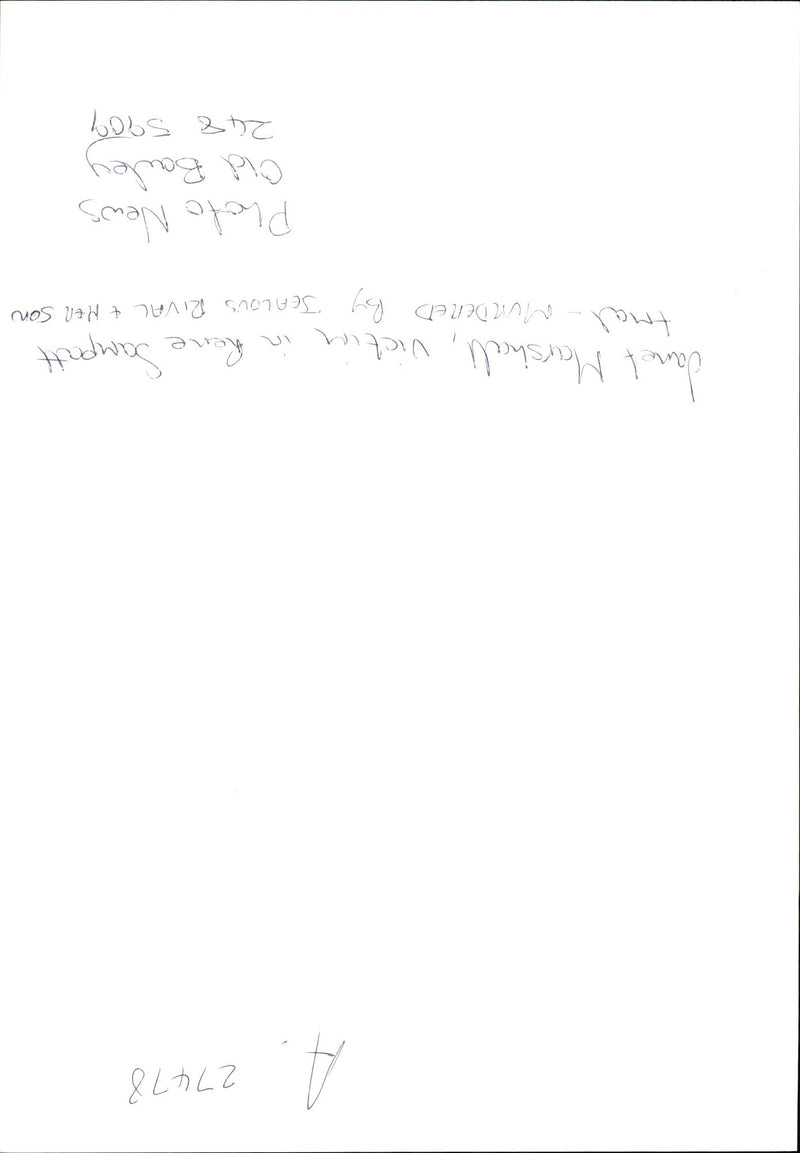 A. 27478
Janet Marshall, Victim in Rene Sampatt
trial - MURDERED By JEALOUS RIVAL + HER SON
Photo News
Old Bailey
248 5909